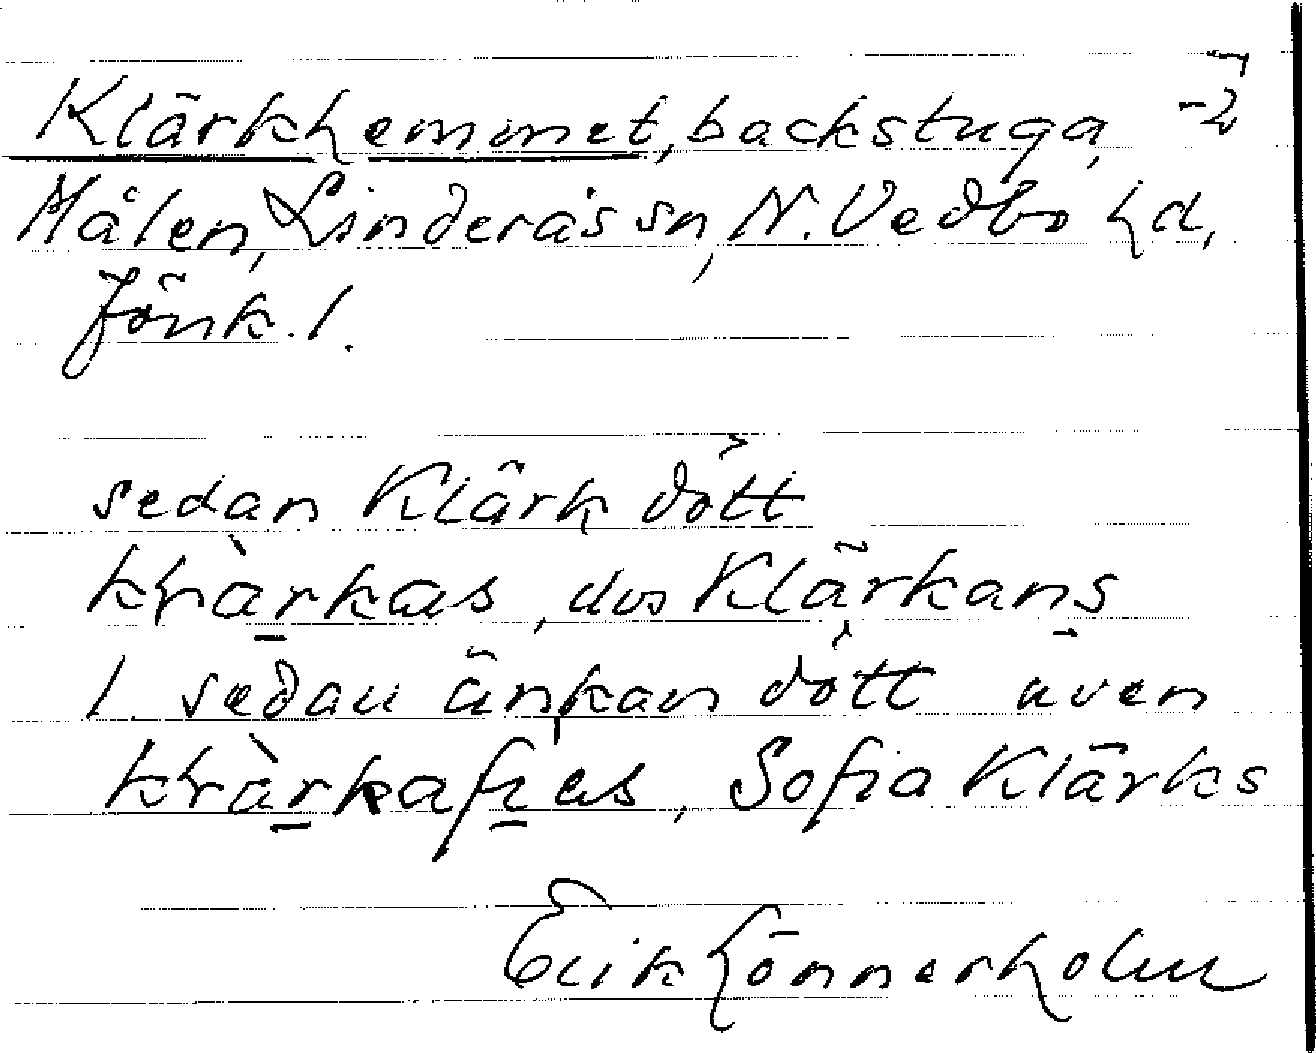 Klärkhemmet, backstuga, -2
Målen, Linderås sn, N. Vedbo hd,
Jönk. l.
sedan Klärk dött
, dvs Klärkans
l. sedan änkan dött även
, Sofia Klärks
Erik Lönnerholm